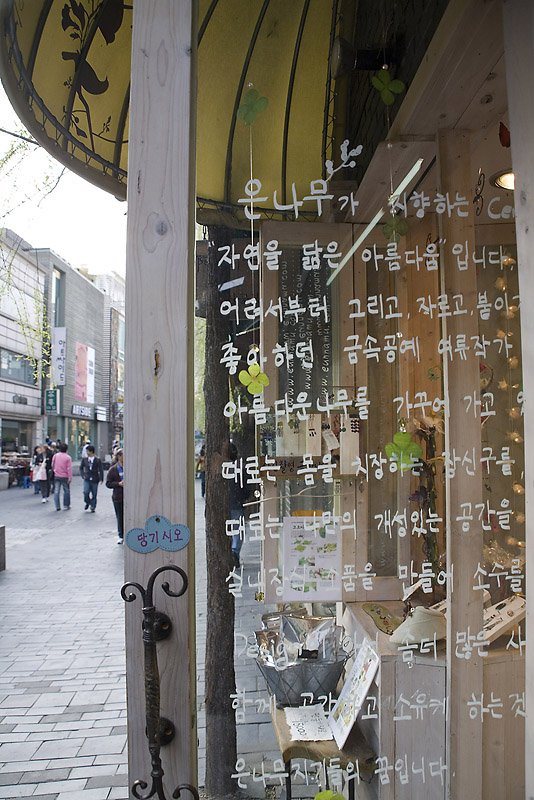 은나무가 지향하는 Con
"자연을 닮은 아름다움"입니다.
어려서부터 그리고, 자르고, 붙이고
좋아하던 금속공예 여류작가
아름다운나무를 가꾸어 가고
때로는 몸을 치장하는 장신구를,
때로는 나만의 개성있는 공간을
실내장식 소품을 만들어 소수를
Design 좀더 많은 사
함께 공감하고 소유케 하는것
은나무지기들의 꿈입니다.
당기시오